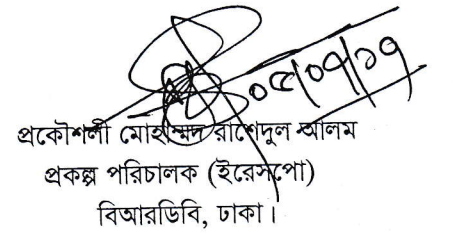 ০৫/০৭/১৭
প্রকৌশলী মোহাম্মদ রাশেদুল আলম
প্রকল্প পরিচালক (ইরেসপো)
বিআরডিবি, ঢাকা।